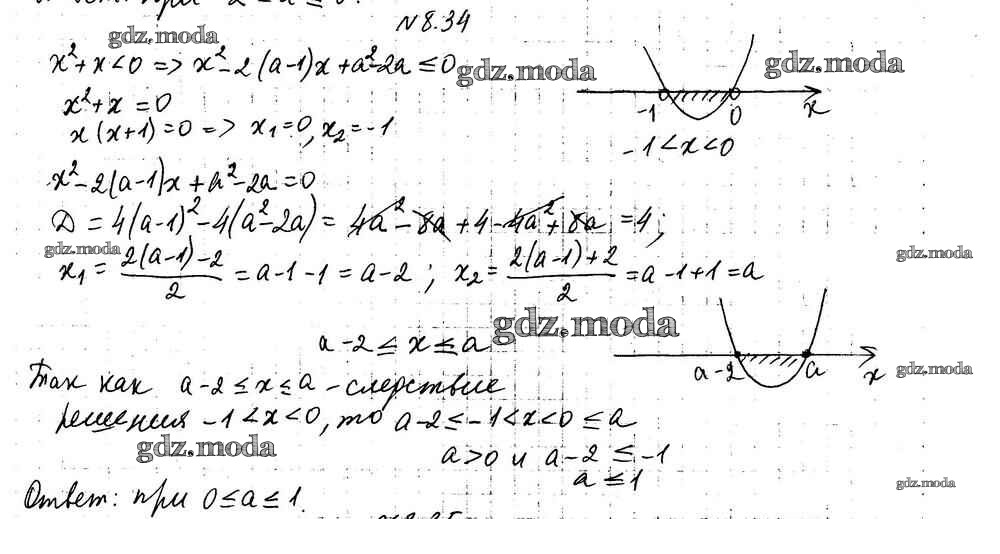 № 8.34
gdz.moda
x²+x<0 => x²-2(a-1)x+a²-2a ≤ 0
gdz.moda
gdz.moda
x²+x=0
x(x+1)=0 => x₁=0, x₂=-1
-1 0 x
-1<x<0
x²-2(a-1)x+a²-2a=0
D = 4(a-1)²-4(a²-2a) = 4a²-8a+4-4a²+8a = 4;
gdz.moda
gdz.moda
x₁ = 2(a-1)-2/2 = a-1-1 = a-2; x₂ = 2(a-1)+2/2 = a-1+1 = a
gdz.moda
a-2 ≤ x ≤ a
a-2 a x
gdz.moda
Так как a-2 ≤ x ≤ a - следствие
решения -1<x<0, то a-2 ≤ -1<x<0 ≤ a
gdz.moda
a>0 и a-2 ≤ -1
a ≤ 1
gdz.moda
Ответ: при 0 ≤ a ≤ 1.